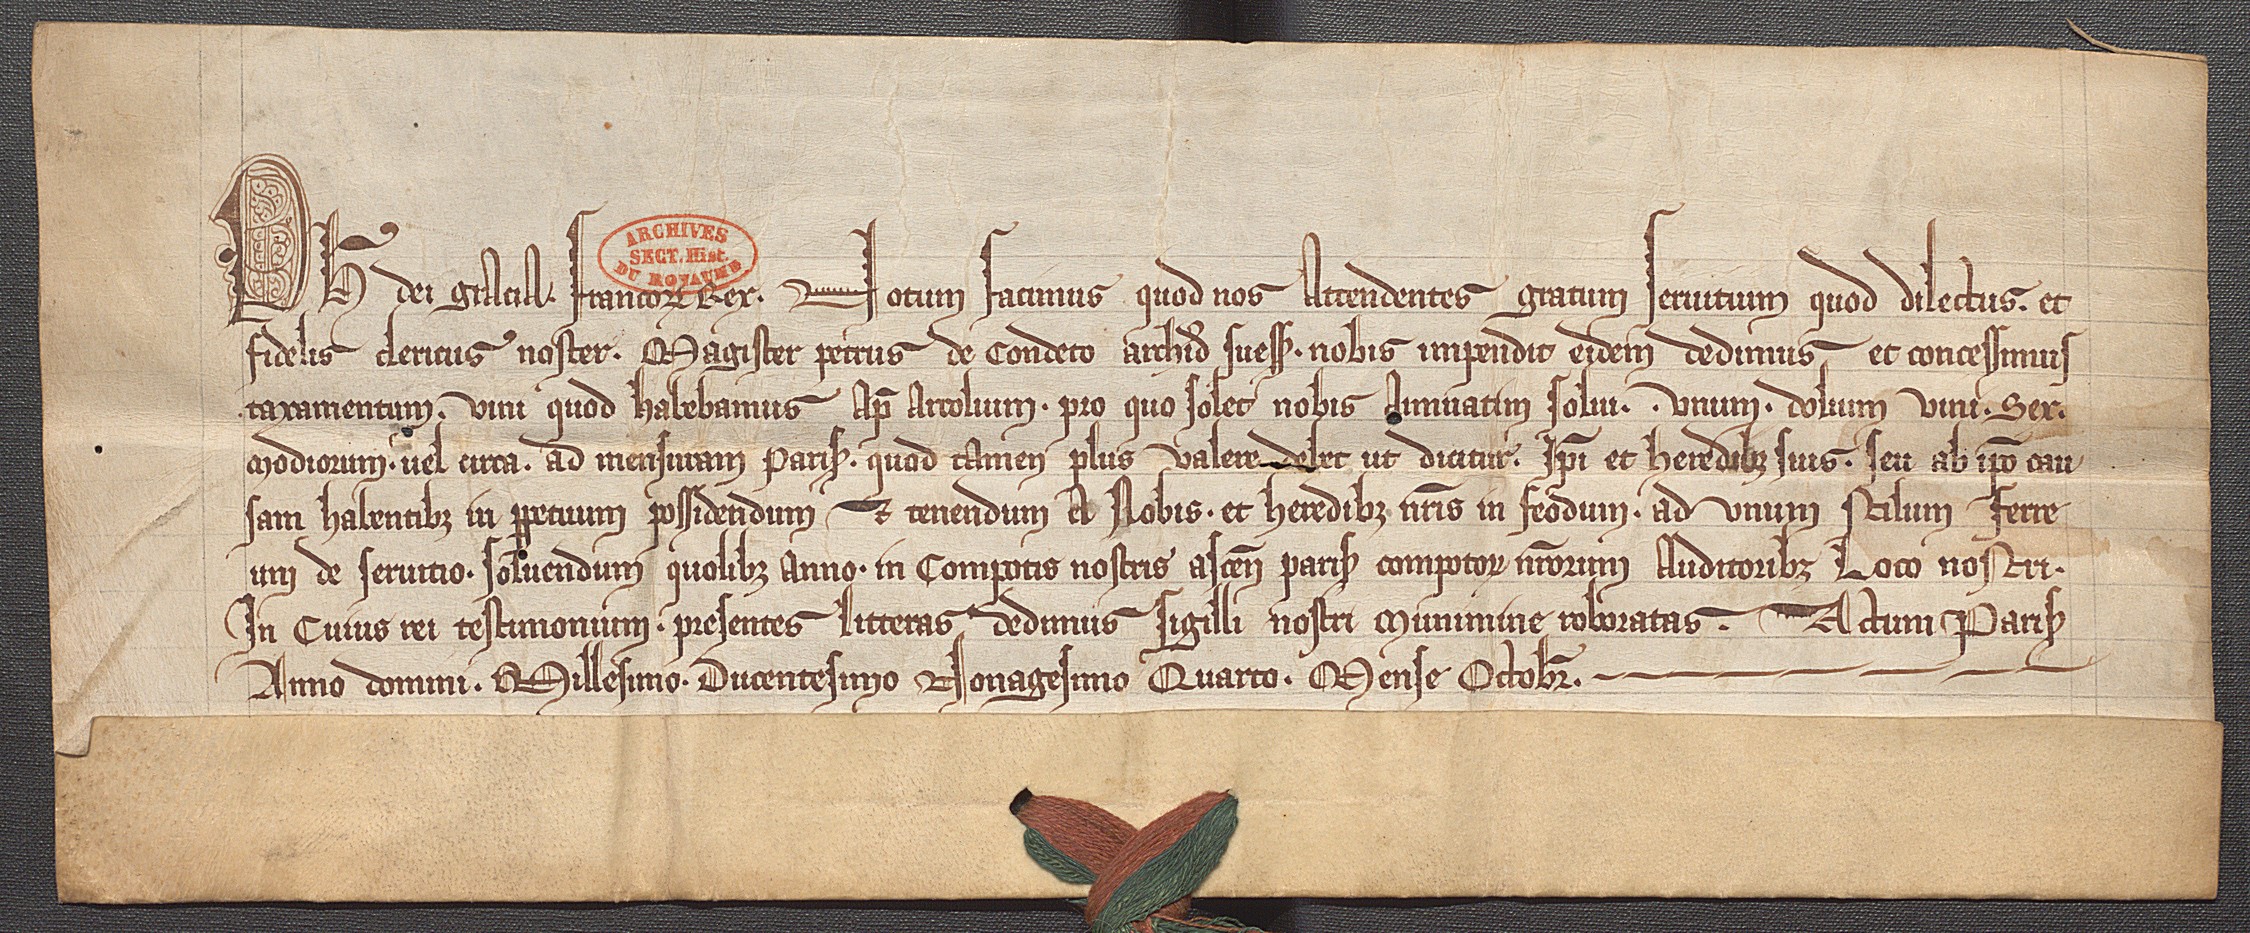 Ph dei gracia. Francorꝝ Rex. Notum facimus quod nos Attendentes gratum seruitium quod dilectus. et
ARCHIVES
SECT. Hist.
DU ROYAUME
fidelis clericus noster. Magister petrus de Condeto archid̄ suess̄. nobis impendit eidem dedimus et concessimus
taxamentum. vini quod habebamus Ap̄ Artolium. pro quo solet nobis Annuatim solui. . vnum. dolium vini. Sex.
modiorum. uel circa. ad mensuram Paris̄. quod tamen plus valere debet ut dicitur. Ip̄i et heredibꝫ suis. seu ab ip̄o cau
sam habentibꝫ in ꝑpetuum possidendum Et tenendum A Nobis. et heredibꝫ nr̄is in feodum. ad vnum stilum ferre
um de seruitio. soluendum quolibꝫ Anno. in Compotis nostris ascen̄ paris̄ compotoꝝ nr̄orum Auditoribꝫ Loco nostri.
In Cuius rei testimonium. presentes litteras dedimus sigilli nostri munimine roboratas. Actum Paris̄
Anno domini. Millesimo. Ducentesimo Nonagesimo Quarto. Mense Octobr̄.